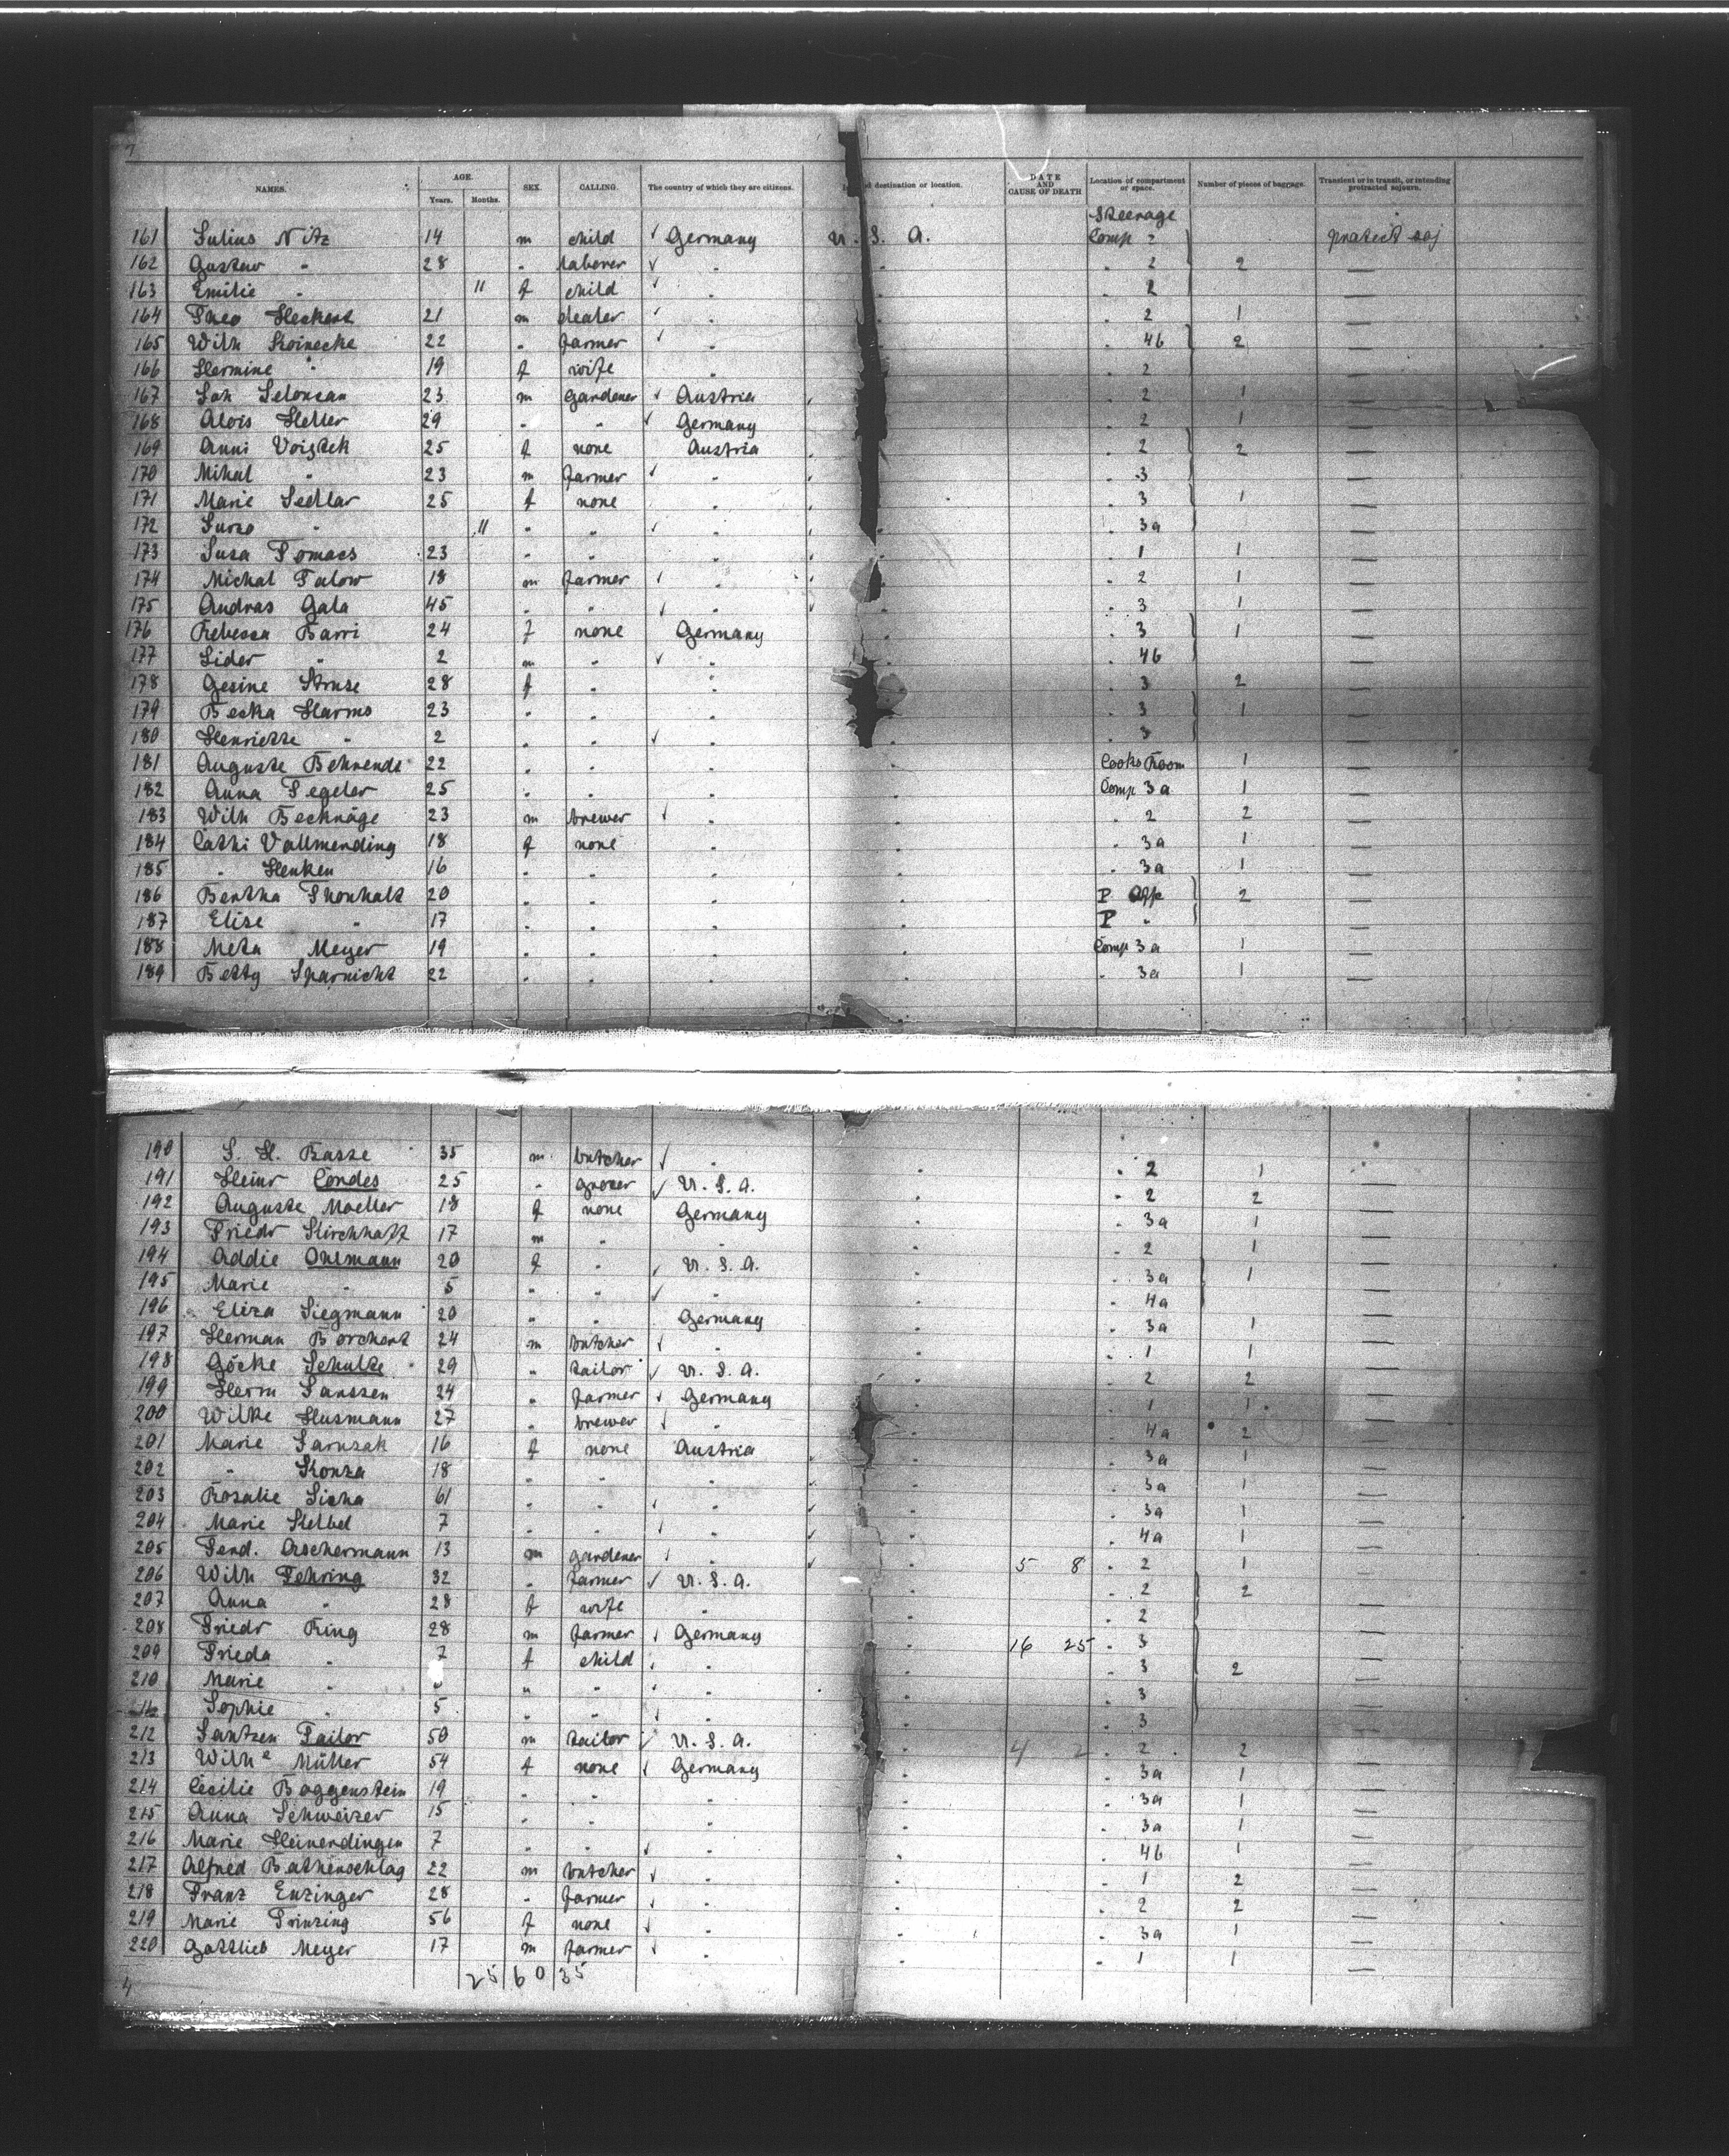 NAMES. AGE. Years. Months. SEX. CALLING. The country of which they are citizens. destination or location. DATE AND CAUSE OF DEATH Location of compartment or space. Number of pieces of baggage. Transient or in transit, or intending protracted sojourn.
Steerage
161 Julius Nitz 14 m child ✓ Germany U. S. A. Comp 2
162 Gustav " 28 " laborer ✓ " " " 2 2 —
163 Emilie " 11 f child ✓ " " " 2 —
164 Theo Heckert 21 m dealer ✓ " " " 2 1 —
165 Wilh Koinecke 22 " farmer ✓ " " 4b 2 —
166 Hermine " 19 f wife " " 2 —
167 Joh 23 m gardener ✓ Austria " 2 1 —
168 Alois Heller 29 " " ✓ Germany " 2 1 —
169 Anni Voistek 25 f none Austria " 2 2 —
170 Mihal " 23 m farmer ✓ " " 3 —
171 Marie Sedlar 25 f none " " 3 1 —
172 " 11 " " ✓ " " 3a —
173 Susa Tomaes 23 " " " " 1 1 —
174 Michal Talow 18 m farmer ✓ " " 2 1 —
175 Andras Gala 45 " " ✓ " " 3 1 —
176 Rebecca Barri 24 f none Germany " 3 1 —
177 Lider " 2 m " ✓ " " 4b —
178 Gesine Struse 28 f " " " 3 2 —
179 Becka Harms 23 " " " " 3 1 —
180 Henriette " 2 " " ✓ " " 3 —
181 Auguste Behrends 22 " " " " Cooks Room 1 —
182 Anna Segeler 25 " " " " Comp 3a 1 —
183 Wilh Becknäge 23 m brewer ✓ " " " 2 2 —
184 Cathi Vallmerding 18 f none " " " 3a 1 —
185 " Henken 16 " " " " " 3a 1 —
186 Bertha Shonhalt 20 " " " " P 2 —
187 Elise " 17 " " " " P " —
188 Meta Meyer 19 " " " " Comp 3a 1 —
189 Betty Sparnicht 22 " " " " " 3a 1 —
190 J. H. Basse 35 m butcher ✓ " " 2 1 —
191 Heinr Cordes 25 " grocer ✓ U. S. A. " " 2 2 —
192 Auguste Moeller 18 f none Germany " " 3a 1 —
193 Friedr Kirchhoff 17 m " " " " 2 1 —
194 Addie Ohlmann 20 f " ✓ U. S. A. " " 3a 1 —
195 Marie " 5 " " ✓ " " " 4a —
196 Eliza Siegmann 20 " " Germany " " 3a 1 —
197 Herman Borchert 24 m butcher ✓ " " " 1 1 —
198 Göcke Schulte 29 " tailor ✓ U. S. A. " " 2 2 —
199 Herm Janssen 24 " farmer ✓ Germany " 1 1 —
200 Wilke Husmann 27 " brewer ✓ " " 4a 2 —
201 Marie Jaruzak 16 f none Austria " 3a 1 —
202 " Konza 18 " " " " 3a 1 —
203 Rosalie Sicha 61 " " ✓ " " 3a 1 —
204 Marie Helbel 7 " " ✓ " " 4a 1 —
205 Ferd. Aschermann 13 m gardener ✓ " " 5 8 " 2 1 —
206 Wilh Fehring 32 " farmer ✓ U. S. A. " " 2 2 —
207 Anna " 28 f wife " " " 2 —
208 Friedr Ring 28 m farmer ✓ Germany " 16 25 " 3 —
209 Frieda " 7 f child ✓ " " " 3 2 —
210 Marie " " " ✓ " " " 3 —
Sophie " 5 " " ✓ " " " 3 —
212 Jantzen Tailor 50 m tailor ✓ U. S. A. " 4 2 " 2 2 —
213 Wilhe Müller 54 f none ✓ Germany " " 3a 1 —
214 Cecilie Boggenstein 19 " " " " " 3a 1 —
215 Anna Schweizer 15 " " " " " 3a 1 —
216 Marie Heinerdingen 7 " " ✓ " " " 4b 1 —
217 Alfred 22 m butcher ✓ " " " 1 2 —
218 Franz Enzinger 28 " farmer ✓ " " " 2 2 —
219 Marie Prinzing 56 f none ✓ " " " 3a 1 —
220 Gottlieb Meyer 17 m farmer ✓ " " " 1 1 —
4 25 60 35